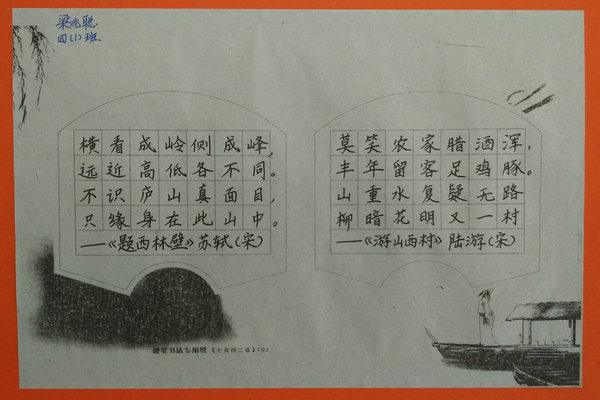 梁兆聪
四(1)班
横看成岭侧成峰,
远近高低各不同。
不识庐山真面目,
只缘身在此山中。
——《题西林壁》苏轼(宋)
莫笑农家腊酒浑,
丰年留客足鸡豚。
山重水复疑无路
柳暗花明又一村
——《游山西村》陆游(宋)
硬笔书法专用纸【七言诗二首】